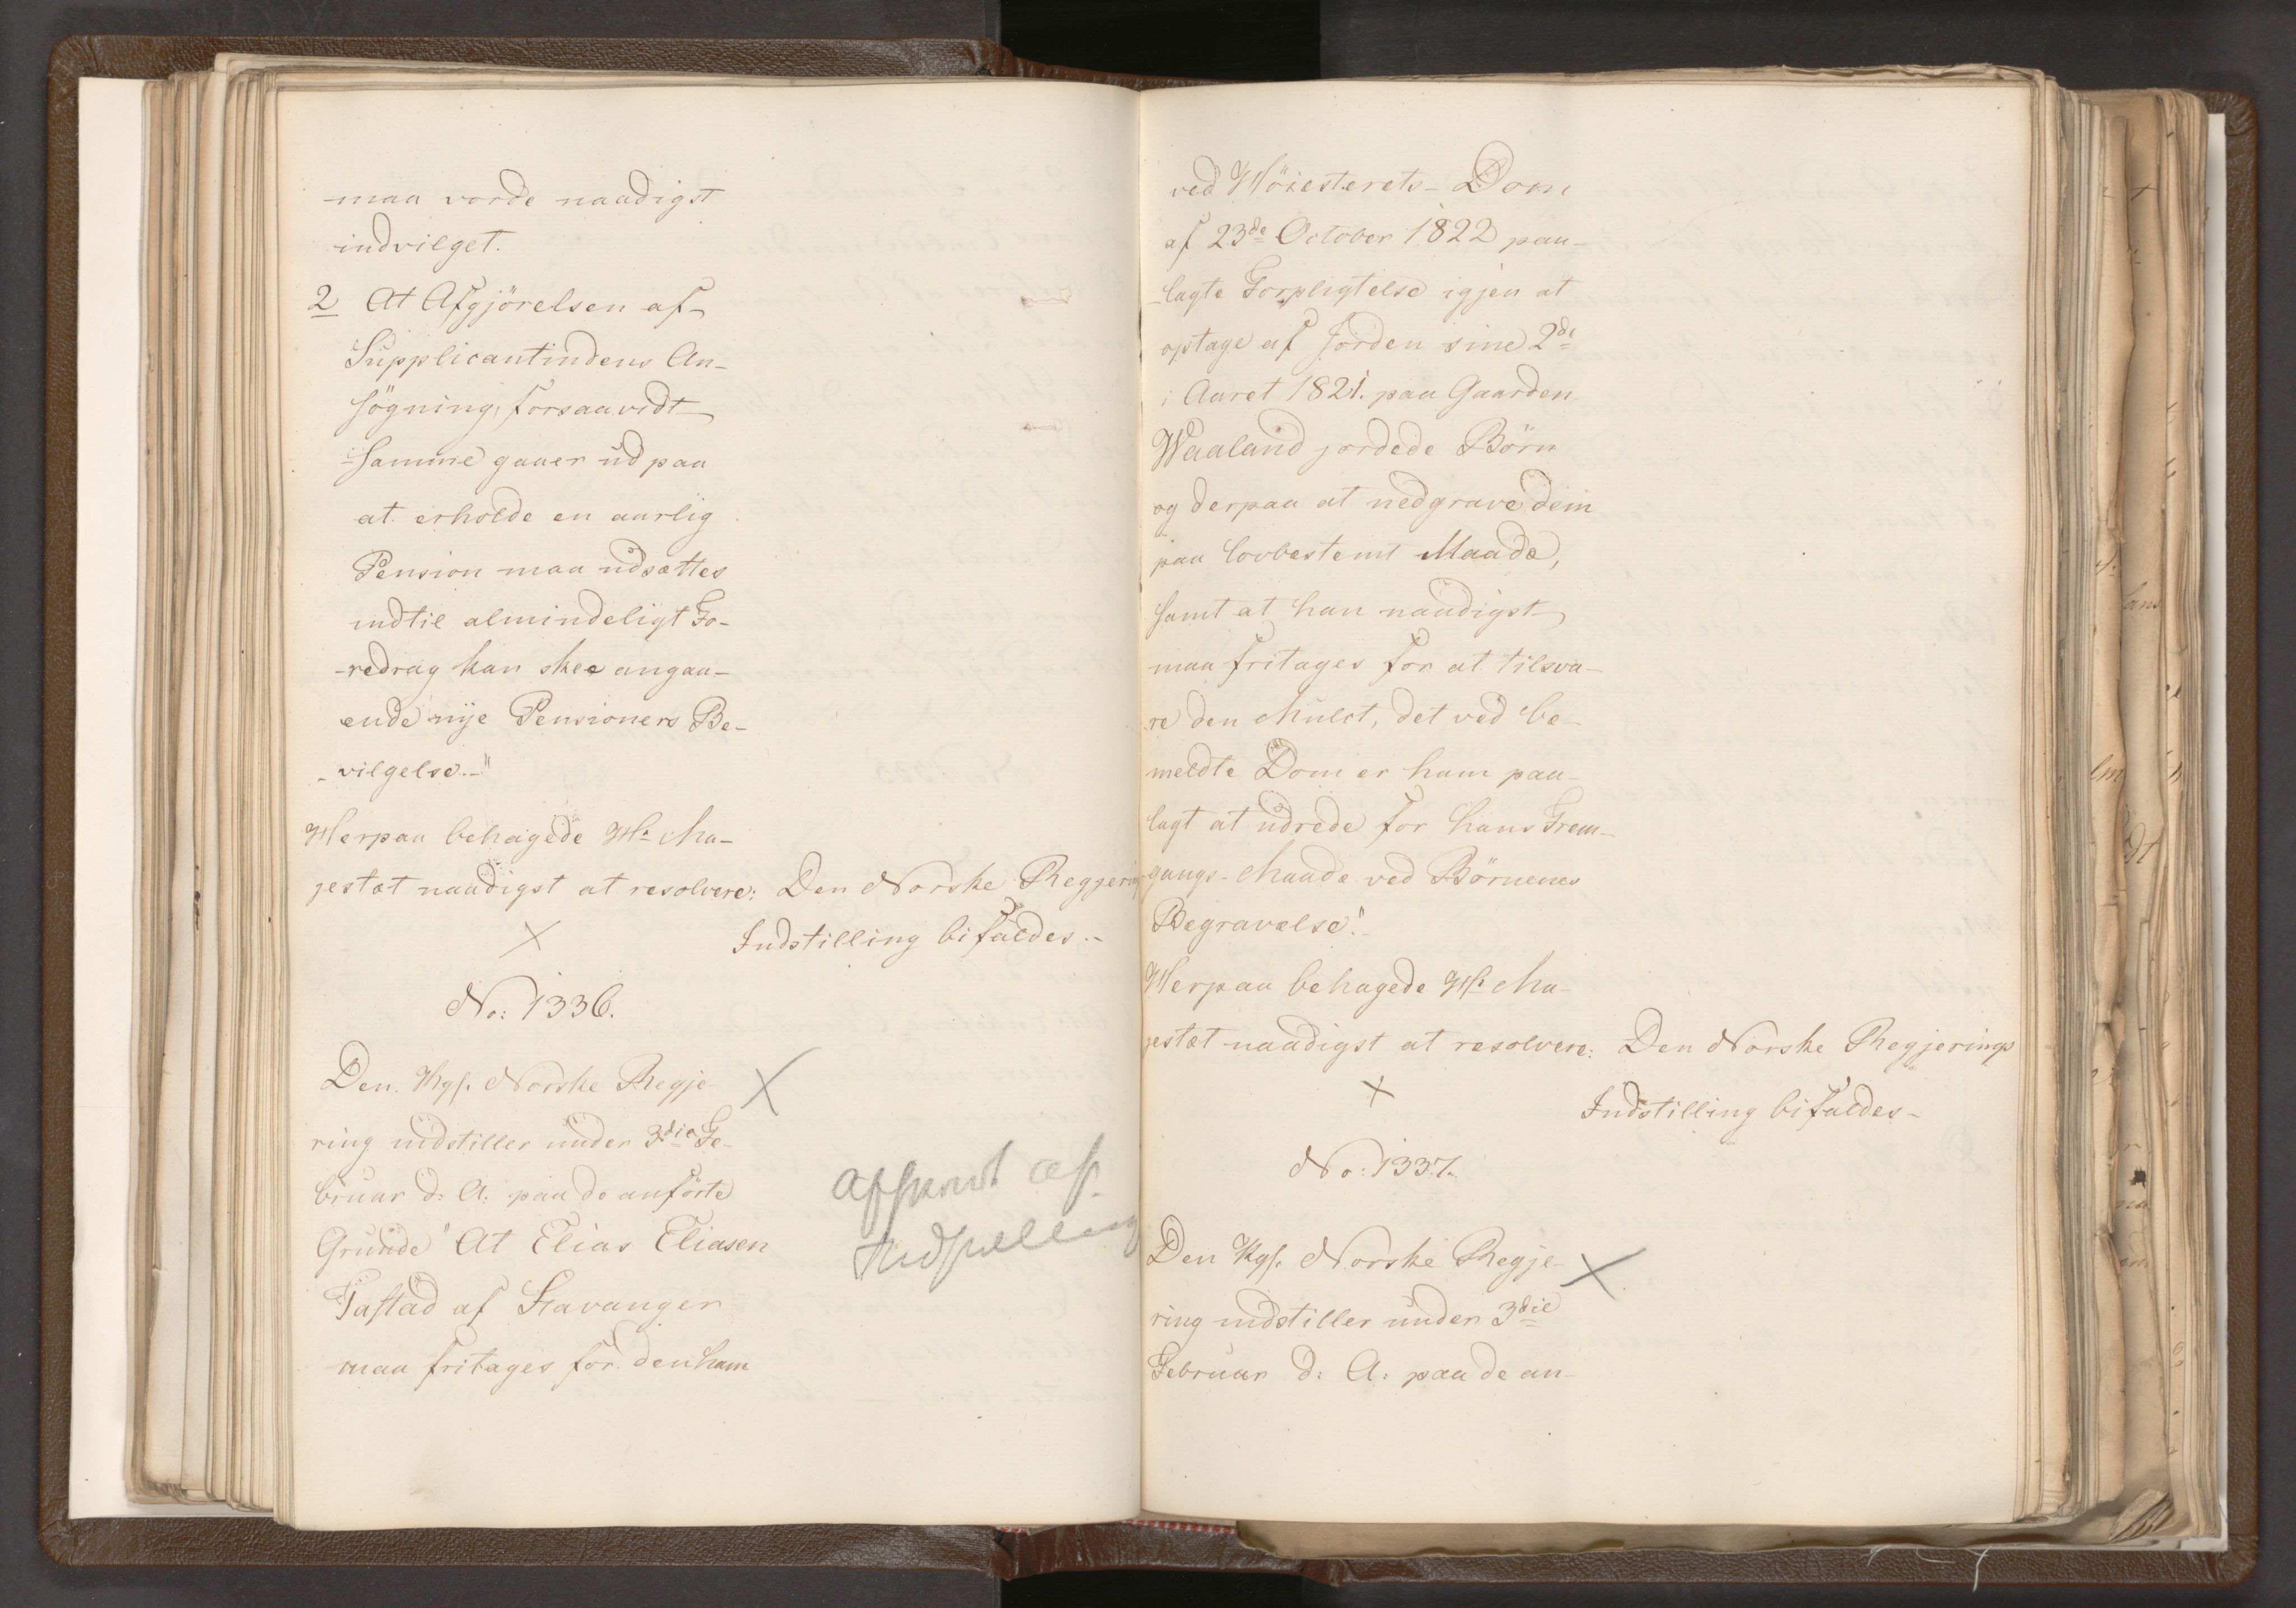 maa vorde naadigst
indvilget.
2 At Afgjörelsen af
Supplicantindens An-
søgning, forsaavidt
samme gaaer ud paa
at erholde en aarlig
Pension maa udsættes
indtil almindeligt Fo-
-redrag kan skee angaa-
ende nye Pensioners Be-
-vilgelse.-"
Herpaa behagede Hs Ma-
jestæt naadigst at resolvere: Den Norske Regjerings
Indstilling bifaldes.-
No: 1336.
Den Kgl. Norske Regje-
ring indstiller under 3die Fe-
bruar d: A: paa de anförte
Grunde "At Elias Eliasen
Tastad af Stavanger
maa fritages for den ham
Afskrevet af
Indstilling
ved Höiesterets-Dom
af 23de October 1822 paa-
-lagte Forpligtelse igjen at
optage af Jorden sine 2de
i Aaret 1821. paa Gaarden
Waaland jordede Börn
og derpaa at nedgrave dem
paa lovbestemt Maade,
samt at han naadigst
maa fritages for at tilsva-
re den Mulct, det ved be-
meldte Dom er ham paa-
lagt at udrede for hans Frem-
gangs-Maade ved Börnenes
Begravelse."
Herpaa behagede Hs Ma-
jestæt naadigst at resolvere: Den Norske Regjerings
Indstilling bifaldes-
No: 1337.
Den Kgl. Norske Regje-
ring indstiller under 3die
Februar d: A: paa de an-